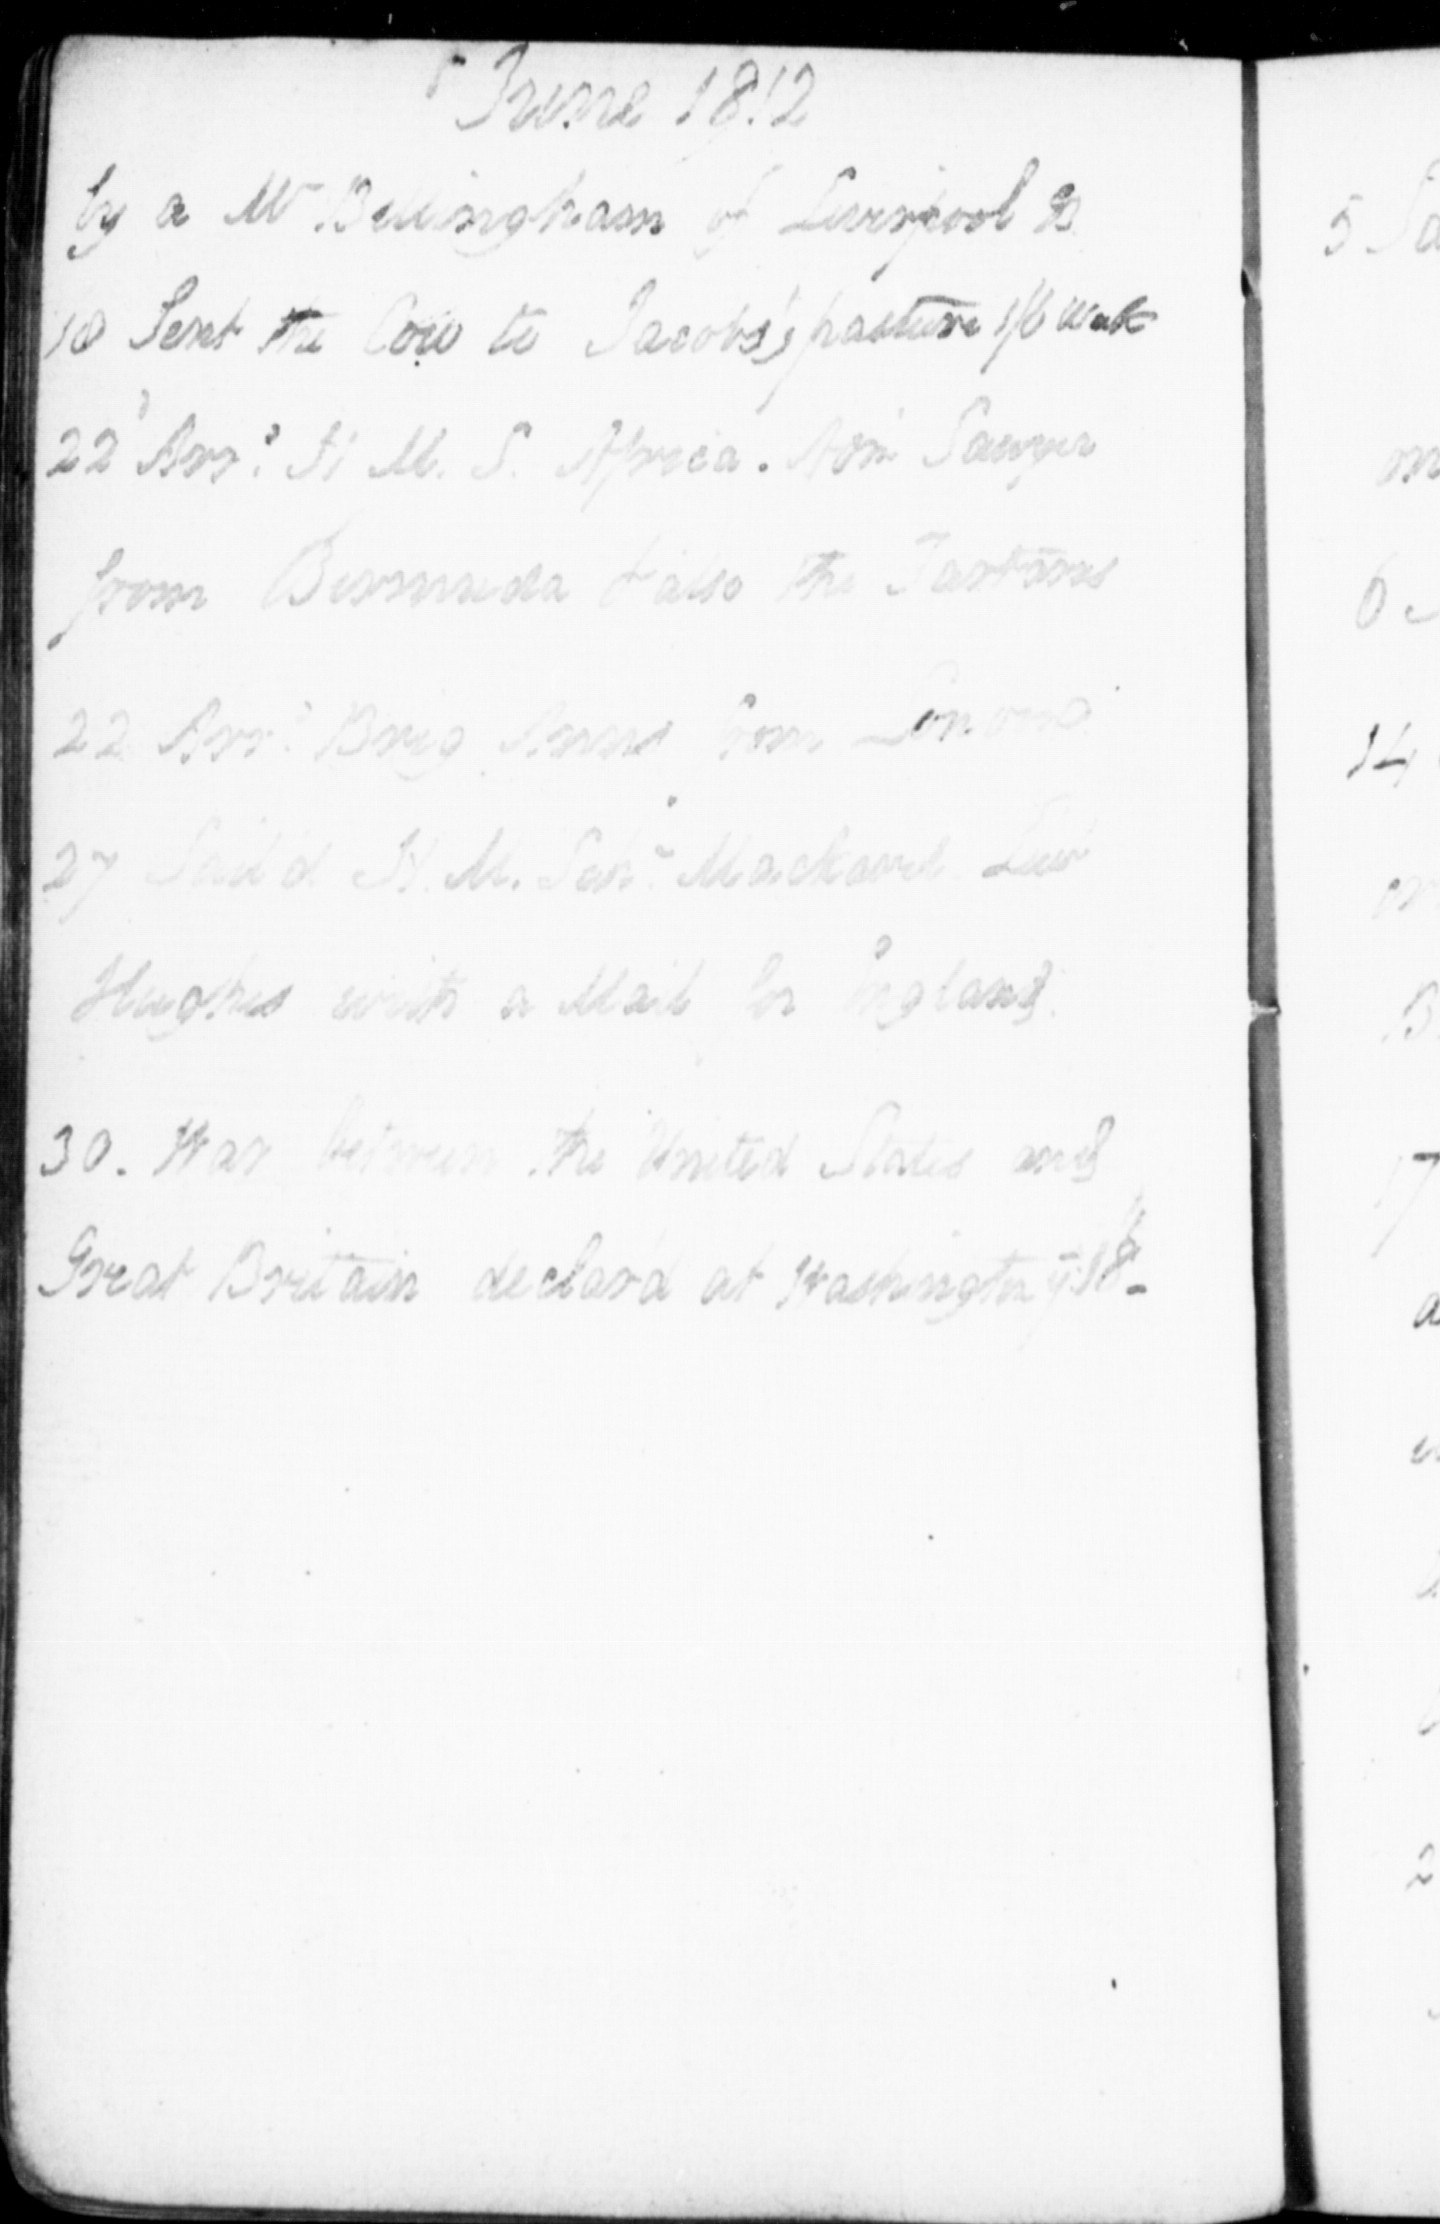 June 1812
by a Mr Bellingham of Liverpool
18 Sent the Cow to Jacobs's pasture 1/6 week
22 Arrd H M. S. Africa. Adm Sawyer
from Bermuda & also the Tartarus
22 Arrd Brig Anns from London
27 Sail'd H. M. Schr Mackarel Lieut
Hughes with a Mail for England.
30. War between the United States and
Great Britain declar'd at Washington ye 18th
5
6
14
17